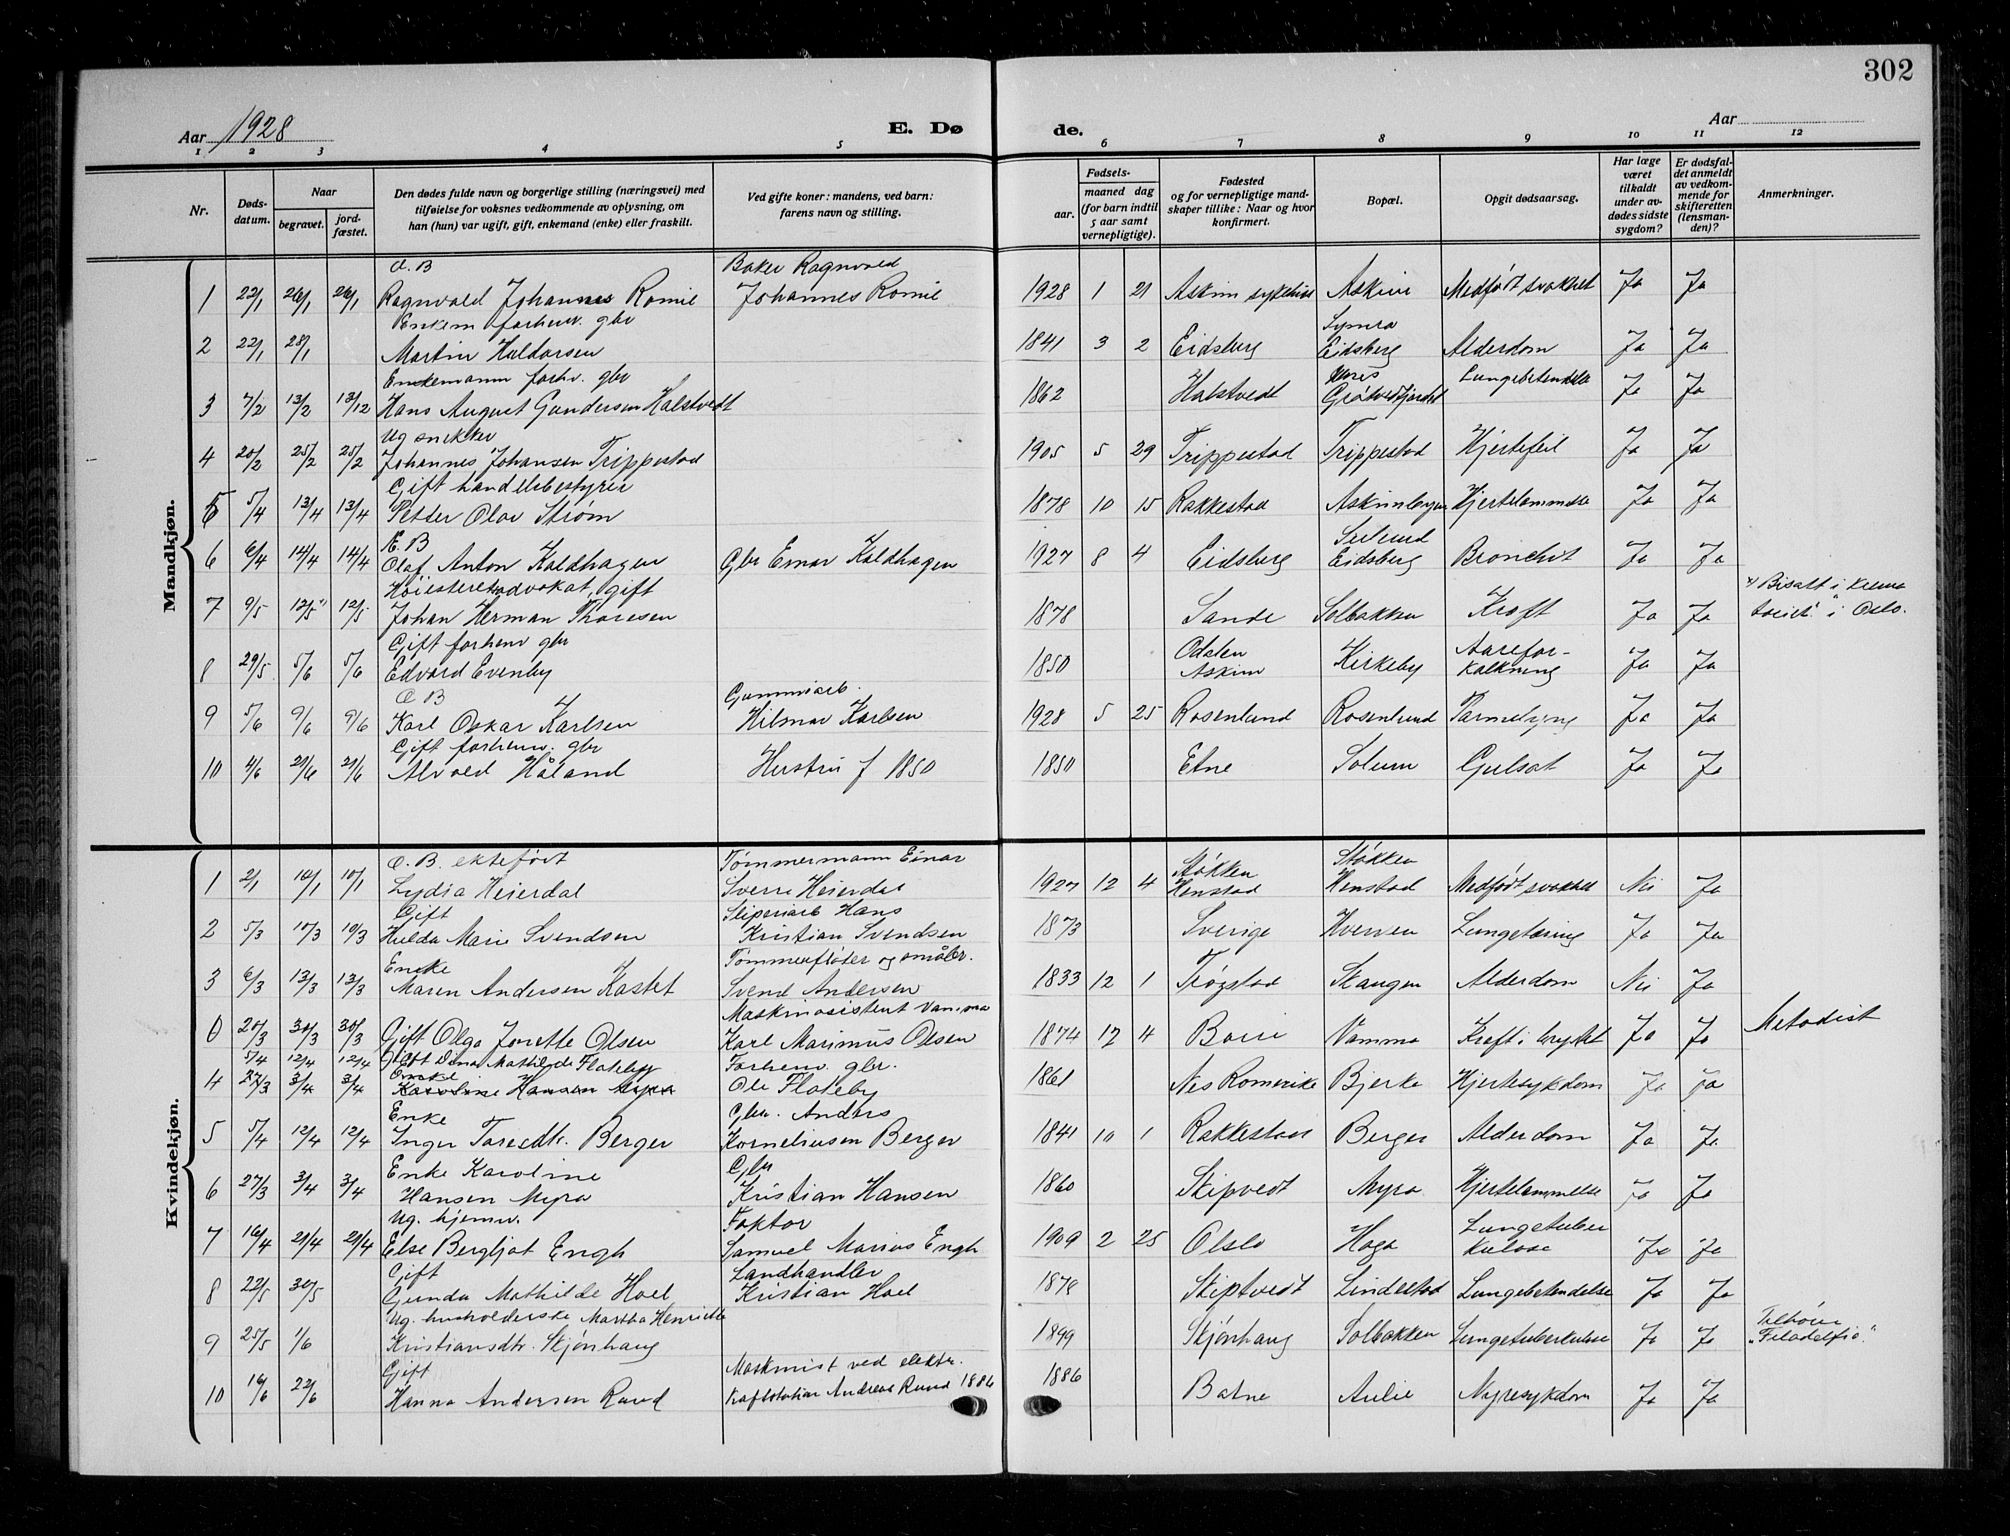 302
Aar 1928
E. Dø
de.
Aar
1 2 3 4 5 6 7 8 9 10 11 12
Nr.
Døds-
datum.
Naar
begravet.
jord-
fæstet.
Den dødes fulde navn og borgerlige stilling (næringsvei) med
tilføielse for voksnes vedkommende av oplysning, om
han (hun) var ugift, gift, enkemand (enke) eller fraskilt.
Ved gifte koner: mandens, ved barn:
farens navn og stilling.
Fødsels-
aar.
maaned dag
(for barn indtil
5 aar samt
vernepligtige).
Fødested
og for vernepligtige mand-
skaper tillike: Naar og hvor
konfirmert.
Bopæl.
Opgit dødsaarsag.
Har læge
været
tilkaldt
under av-
dødes sidste
sygdom?
Er dødsfal-
det anmeldt
av vedkom-
mende for
skifteretten
(lensman-
den)?
Anmerkninger.
Mandkjøn.
Æ. B Baker Ragnvald
1 22/1 26/1 26/1 Ragnvald Johannes Romie Johannes Romie 1928 1 21 Askim sykehus Askim Medfødt svakhet Ja Ja
Enkem forhenv. gbr Symra
2 22/1 28/1 Martin Haldorsen 1841 3 2 Eidsberg Eidsberg Alderdom Ja Ja
Enkemann forhv. gbr
3 7/2 13/2 13/12 Hans August Gundersen Halstvedt 1862 Halstvedt Grøtvedtjordet Lungebetendelse Ja Ja
Ug snekker
4 20/2 25/2 25/2 Johannes Johansen Trippestad 1905 5 29 Trippestad Trippestad Hjertefeil Ja Ja
Gift handelsbestyrer
5 5/4 13/4 13/4 Petter Olav Strøm 1878 10 15 Rakkestad Askimbyen Hjertelammelse Ja Ja
Æ. B
6 6/4 14/4 14/4 Olaf Anton Kaldhagen Gbr Einar Kaldhagen 1927 8 4 Eidsberg Eidsberg Bronchit Ja Ja
Høiesteretsadvokat, gift
7 9/5 12/5 12/5 Johan Herman Thoresen 1878 Sande Solbakken Kræft Ja Ja Bisatt i
i Oslo.
Gift forhenv gbr
8 29/5 5/6 5/6 Edvard Evenby 1850 Askim Kirkeby Aarefor-
kalkning Ja Ja
Æ B Gummiarb.
9 5/6 9/6 9/6 Karl Oskar Karlsen Hilmar Karlsen 1928 5 25 Rosenlund Rosenlund Tarmslyng Ja Ja
Gift forhenv. gbr
10 4/6 21/6 21/6 Alvald Håland Hustru f 1850 1850 Etne Solum Gulsot Ja Ja
Kvindekjøn.
Æ. B. ektefødt Tømmermann Einar Støkken Støkken
1 2/1 10/1 10/1 Lydia Heierdal Sverre Heierdal 1927 12 4 Henstad Henstad Medfødt svakhet Nei Ja
Gift Sliperiarb Hans
2 5/3 10/3 10/3 Hulda Marie Svendsen Kristian Svendsen 1873 Sverige Hverven Lungetæring Ja Ja
Enke Tømmerfløter og småbr.
3 6/3 13/3 13/3 Maren Andersen Kastet Svend Andersen 1833 12 1 Trøgstad Skangen Alderdom Nei Ja
Maskinasistent Vamma
0 25/3 30/3 30/3 Gift Olga Josette Olsen Karl Marinus Olsen 1874 12 4 Vamma Kræft i brystet Ja Ja Metodist
5/4 12/4 12/4 Gift Dina Mathilde Flateby Forhenv. gbr.
4 27/3 3/4 3/4 Enke Karoline Hansen Myra Ole Flateby 1861 Nes Romerike Bjerke Hjertesykdom Ja Ja
Enke Gbr. Anders
5 5/4 12/4 12/4 Inger Toresdtr. Berger Korneliussen Berger 1841 10 1 Rakkestad Berger Alderdom Ja Ja
Enke Karoline Gbr
6 27/3 3/4 3/4 Hansen Myra Kristian Hansen 1860 Skipvedt Myra Hjertelammelse Ja Ja
Ug. hjemv. Faktor
7 16/4 21/4 21/4 Else Bergljot Engh Samuel Marius Engh 1909 2 25 Olslo Haga Lungetuber
kulose Ja Ja
Gift Landhandler
8 22/5 30/5 Gunda Mathilde Hoel Kristian Hoel 1878 Skiptvedt Lindestad Lungebetendelse Ja Ja
Ug. husholderske Martha Henriette
9 25/5 1/6 Kristiansdtr. Skjønhaug 1899 Skjønhaug Solbakken Lungetuberkulose Ja Ja Tilhører
"Filadelfia"
Gift Maskinist ved elektr.
10 16/6 22/6 Hanna Andersen Rund Kraftstation Andreas Rund 1886 1886 Batne Aulie Nyresykdom Ja Ja